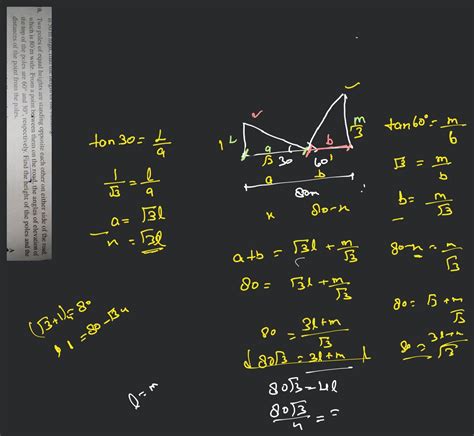 8. Two poles of equal heights are standing opposite each other on either side of the road,
which is 80 m wide. From a point between them on the road, the angles of elevation of
the top of the poles are 60° and 30°, respectively. Find the height of the poles and the
distances of the point from the poles.
tan 30 = L/a
1/√3 = l/a
a = √3l
x = √3l
(√3+1)
= 80
= 80 - √3x
l = m
L
m
√3
1
√3
30
60°
1
b
a
b
80m
x
80-x
a+b = √3l + m/√3
80 = √3l + m/√3
80 = 3l+m/√3
80√3 = 3l+m
80√3 = 4l
80√3/4 =
tan 60° = m/b
√3 = m/b
b = m/√3
80-x = m/√3
80 = √3 + m/√3
80 = 3l+m/√3